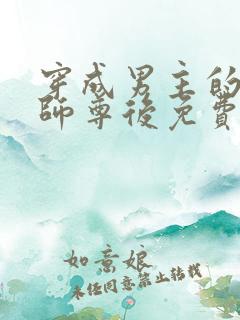 穿成男主的
師尊後免費
如意娘
未经同意禁止转载